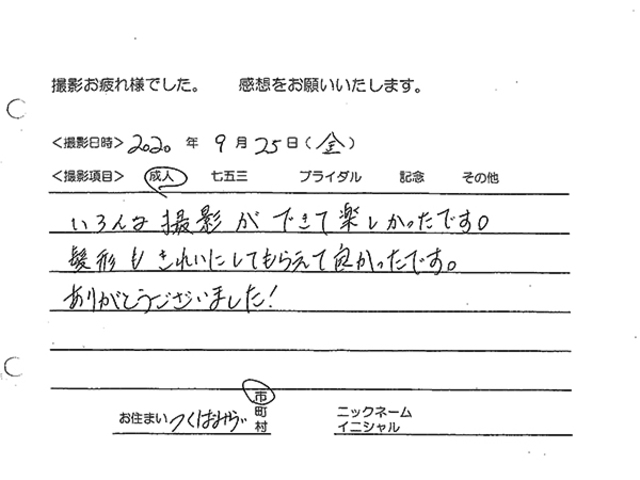 撮影お疲れ様でした。 感想をお願いいたします。
<撮影日時> 2020 年 9 月 25 日 (金)
<撮影項目> 成人 七五三 ブライダル 記念 その他
いろんな撮影ができて楽しかったです。
髪形もきれいにしてもらえて良かったです。
ありがとうございました!
お住まい つくばみらい 市 町 村
ニックネーム
イニシャル